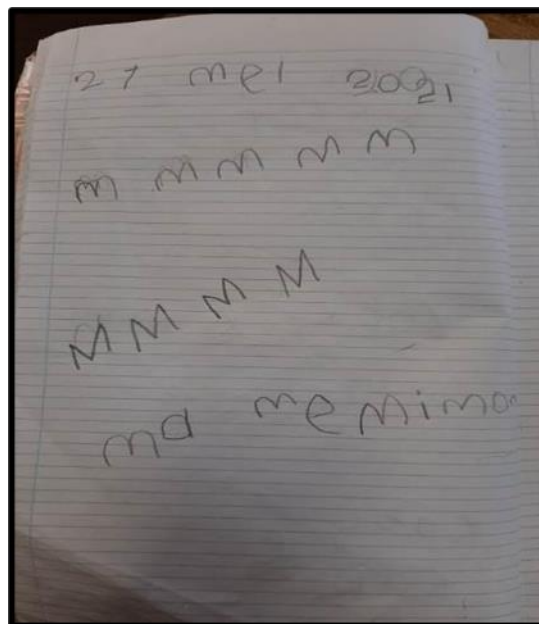 27 mei 2021
m m m m m
M M M M
ma me mi mo